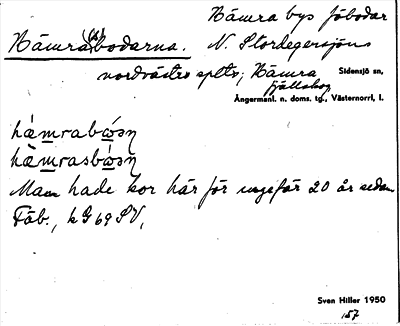 Bämra(s)bodarna. Bämra bys fäbodar
N. Stordegersjöns
nordvästra spets; Bämra
fjällskog
Sidensjö sn,
Ångermanl. n. doms. tg., Västernorrl. l.
Man hade kor här för ungefär 20 år sedan
Fäb., kG 69 SV,
Sven Hiller 1950
157